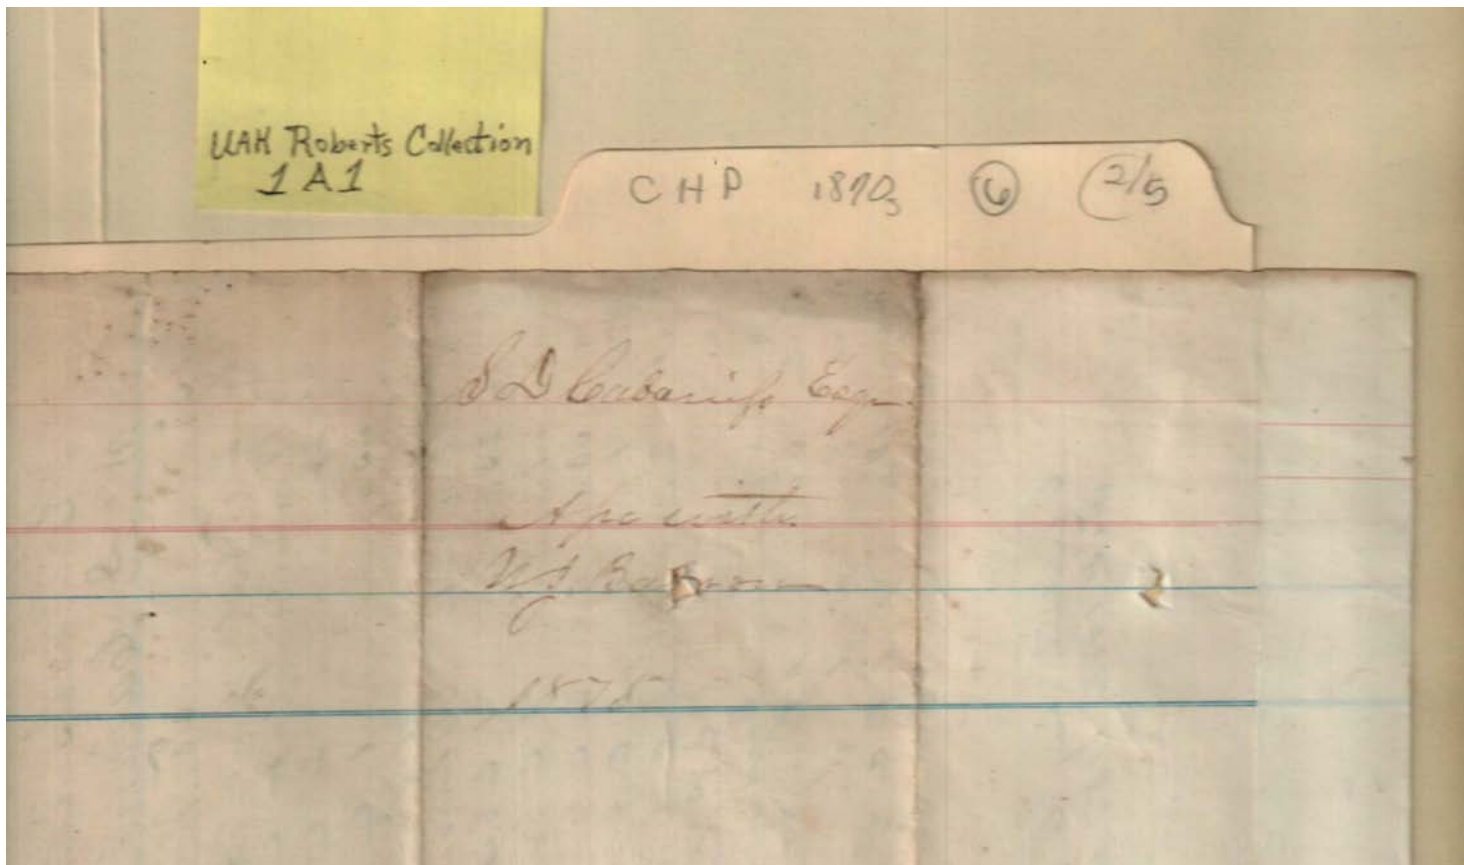 UAH Roberts Collection
1A1
CHP 1870s 6 2/5
S D Cabaniss Esqr
A/c with
1875